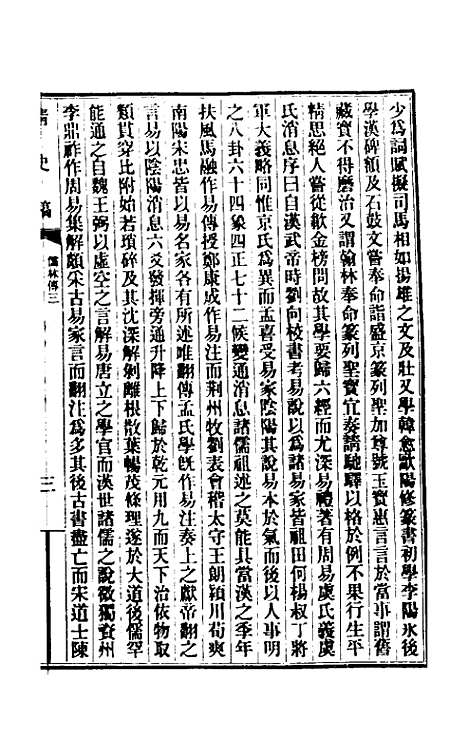 少爲詞賦擬司馬相如揚雄之文及壯又學韓愈歐陽修篆書初學李陽冰後
學漢碑額及石鼓文嘗奉命詣盛京篆列聖加尊號玉寶惠言言於當事謂舊
藏寶不得磨治又謂翰林奉命篆列聖寶宜奏請馳驛以格於例不果行生平
精思絕人嘗從歙金榜問故其學要歸六經而尤深易禮著有周易虞氏義虞
氏消息序曰自漢武帝時劉向校書考易說以爲諸易家皆祖田何楊叔丁將
軍大義略同惟京氏爲異而孟喜受易家陰陽其說易本於氣而後以人事明
之八卦六十四象四正七十二候變通消息諸儒祖述之莫能具當漢之季年
扶風馬融作易傳授鄭康成作易注而荆州牧劉表會稽太守王朗潁川荀爽
南陽宋忠皆以易名家各有所述唯翻傳孟氏學旣作易注奏上之獻帝翻之
言易以陰陽消息六爻發揮旁通升降上下歸於乾元用九而天下治依物取
類貫穿比附始若瑣碎及其沈深解剝離根散葉暢茂條理遂於大道後儒罕
能通之自魏王弼以虛空之言解易唐立之學官而漢世諸儒之說微獨資州
李鼎祚作周易集解頗采古易家言而翻注爲多其後古書盡亡而宋道士陳
清史稿
儒林傳三
三